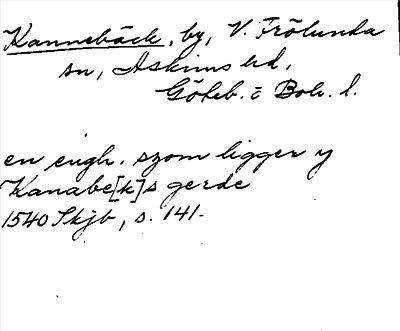 Kannebäck, by, V. Frölunda
sn, Askims hd,
Göteb. o Boh. l.
en engh. szom ligger y
Kanabe[k]s gerde
1540 Skjb, s. 141.